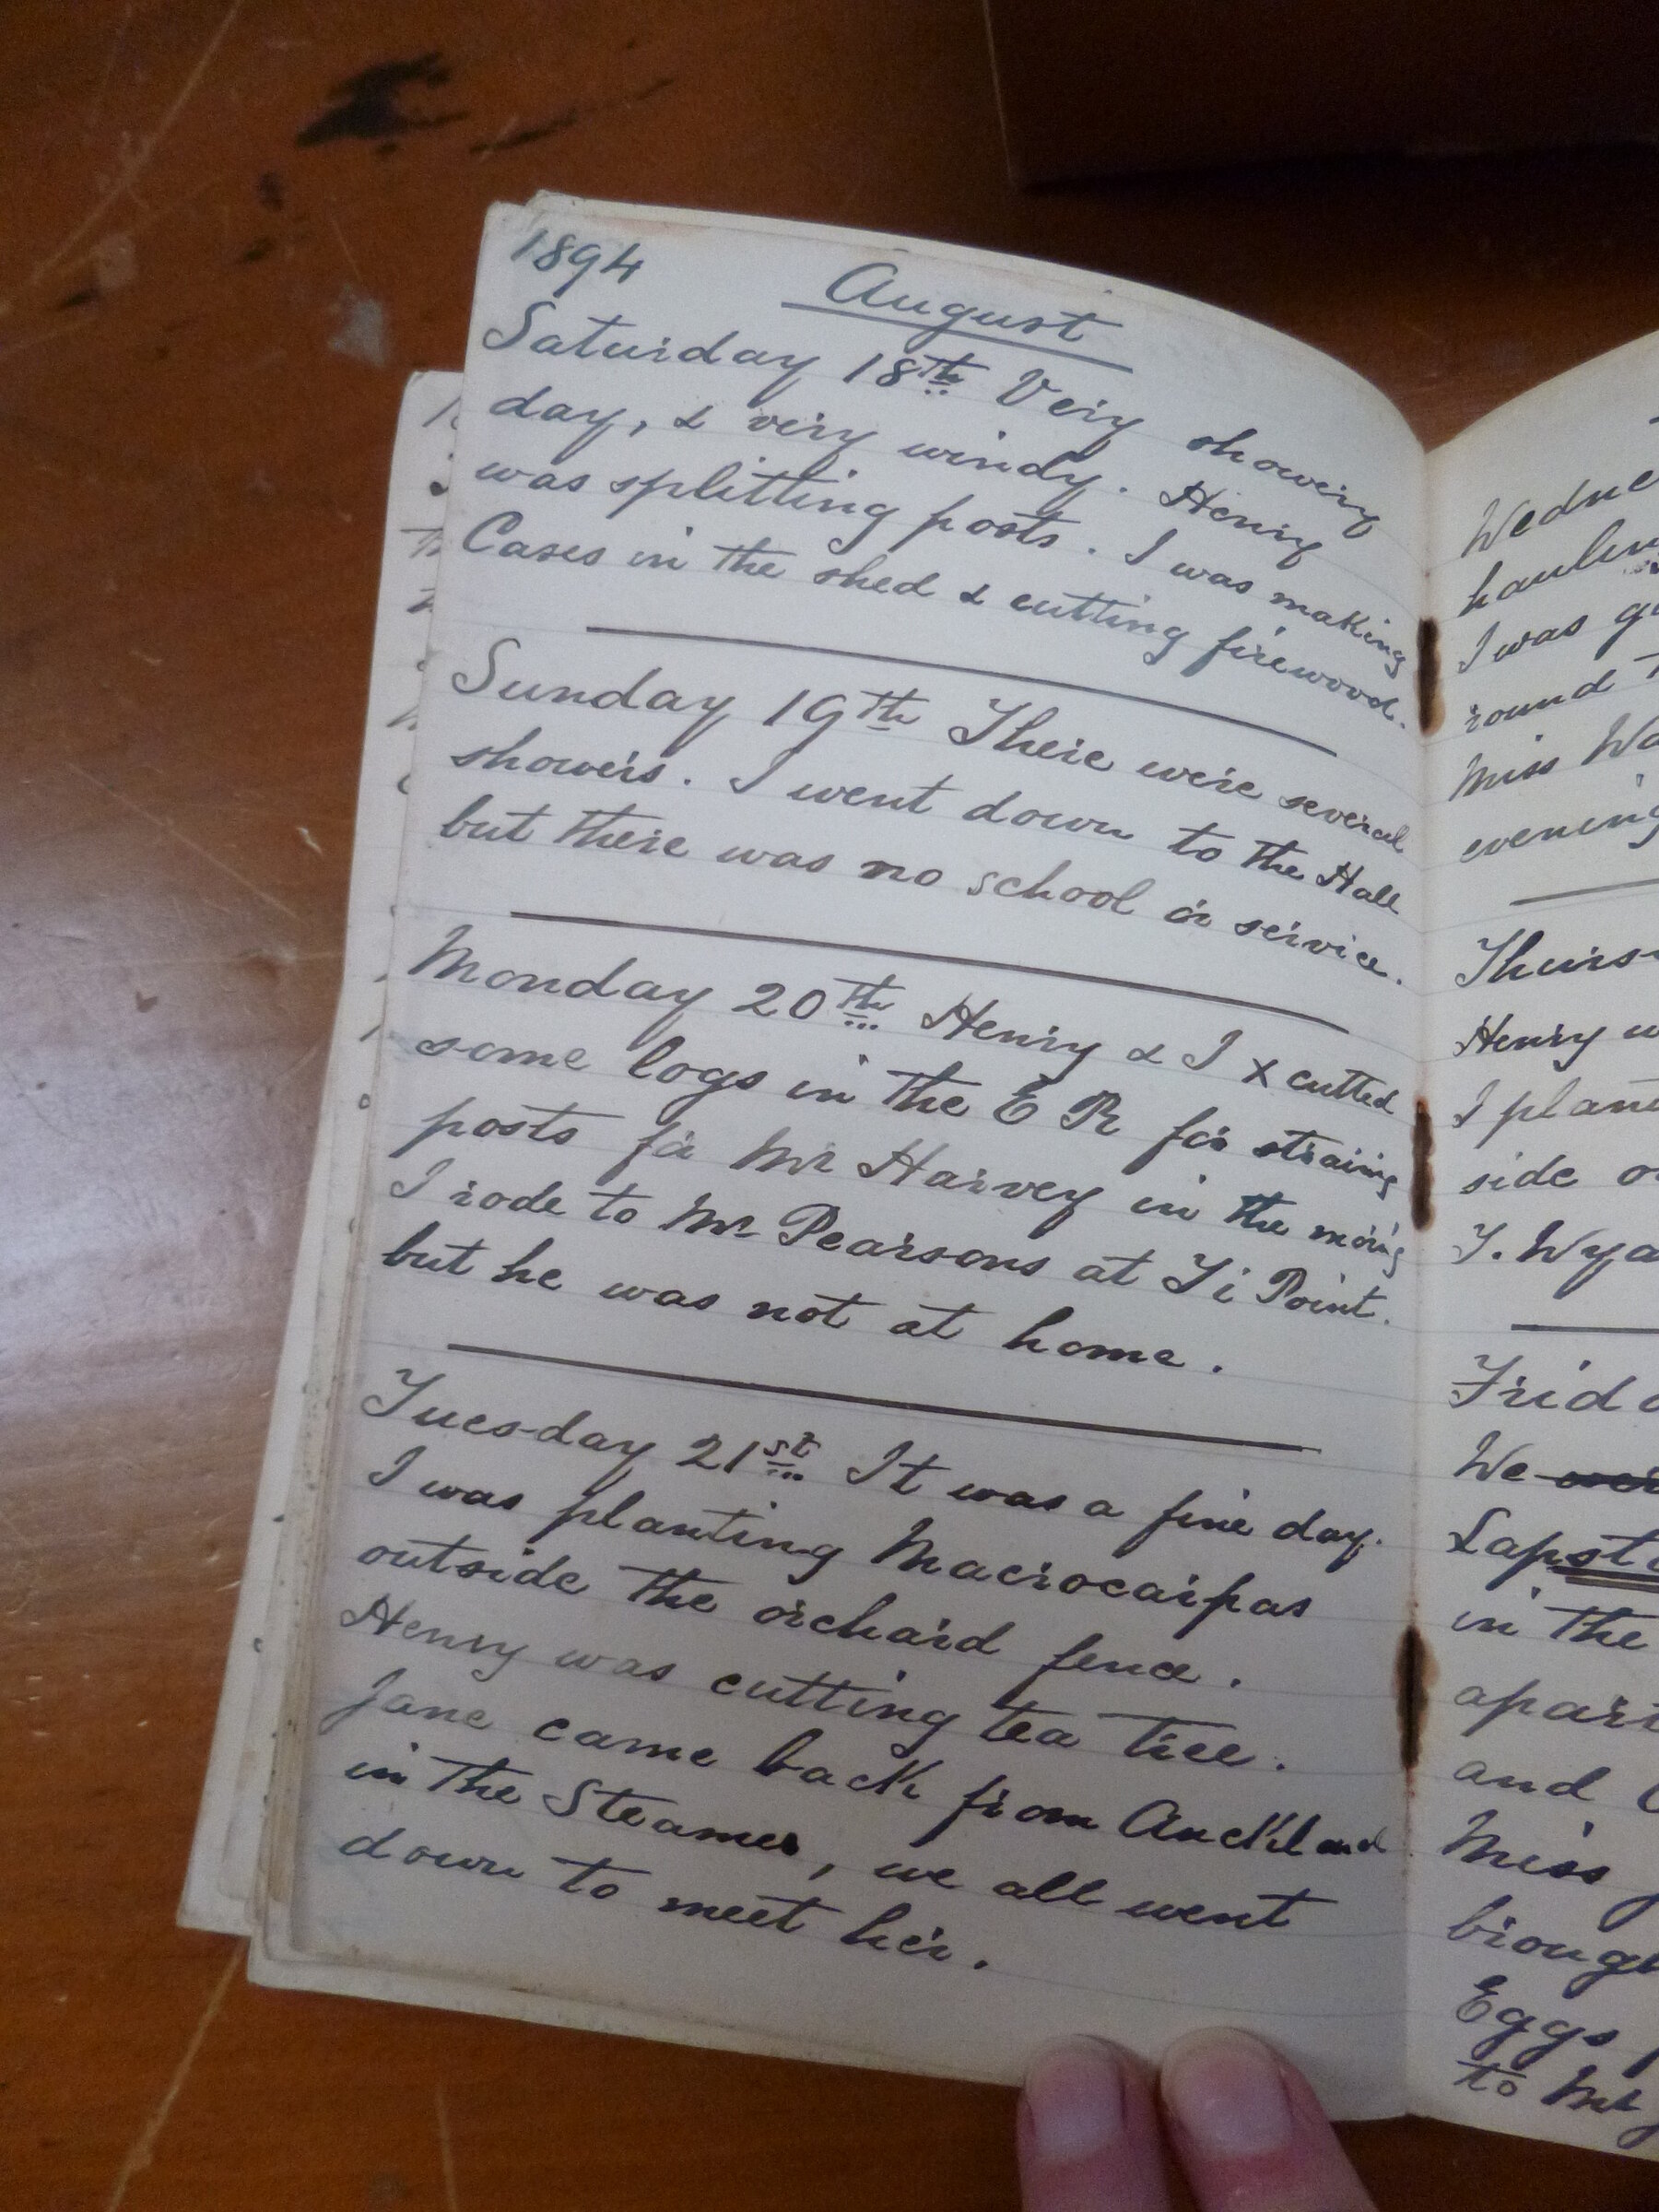 1894
August
Saturday 18th Very showery
day, & very windy. Henry
was splitting posts. I was making
Cases in the shed & cutting firewood.
Sunday 19th There were several
showers. I went down to the Hall
but there was no school or service.
Monday 20th Henry & I x cutted
some logs in the E R for straing
posts for Mr Harvey in the mornig
I rode to Mr Pearsons at Ti Point.
but he was not at home.
Tuesday 21st It was a fine day.
I was planting Macrocarpas
outside the orchard fence.
Henry was cutting tea tree.
Jane came back from Auckland
in the Steamer, we all went
down to meet her.
I was
round
Miss
evening
Henry
I
side
T.
We
in the
and
Miss
Eggs
to Mr